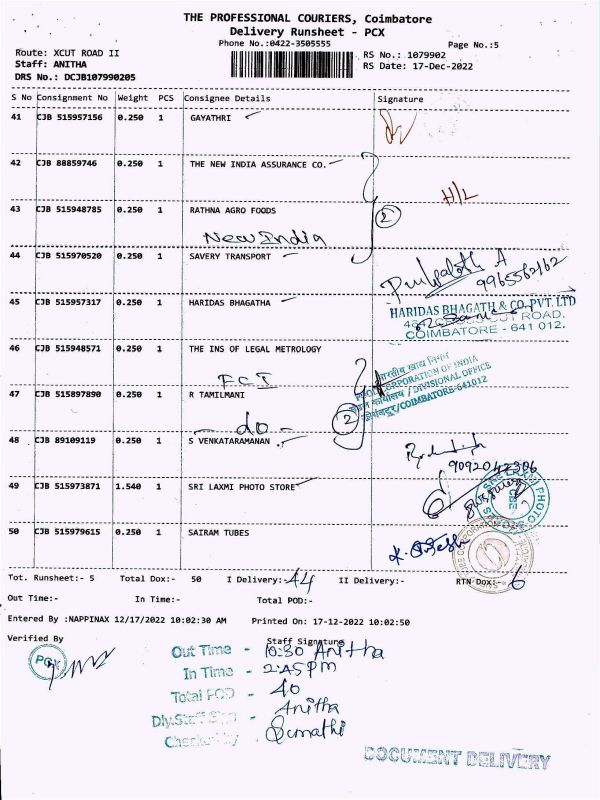 THE PROFESSIONAL COURIERS, Coimbatore
Delivery Runsheet - PCX
Phone No.:0422-3505555
Page No.:5
Route: XCUT ROAD II
RS No.: 1079902
Staff: ANITHA
RS Date: 17-Dec-2022
DRS No.: DCJB107990205
S No Consignment No Weight PCS Consignee Details Signature
41 CJB 515957156 0.250 1 GAYATHRI
42 CJB 88859746 0.250 1 THE NEW INDIA ASSURANCE CO.
H/L
43 CJB 515948785 0.250 1 RATHNA AGRO FOODS
2
New India
44 CJB 515970520 0.250 1 SAVERY TRANSPORT
9965562162
45 CJB 515957317 0.250 1 HARIDAS BHAGATHA
HARIDAS BHAGATH & CO. PVT. LTD
CUT ROAD.
COIMBATORE - 641 012.
46 CJB 515948571 0.250 1 THE INS OF LEGAL METROLOGY
भारतीय खाद्य निगम
FOOD CORPORATION OF INDIA
F.C.I
/ DIVISIONAL OFFICE
/COIMBATORE-641012
47 CJB 515897890 0.250 1 R TAMILMANI
2
- do -
48 CJB 89109119 0.250 1 S VENKATARAMANAN .
9092042306
49 CJB 515973871 1.540 1 SRI LAXMI PHOTO STORE
50 CJB 515979615 0.250 1 SAIRAM TUBES
Tot. Runsheet:- 5 Total Dox:- 50 I Delivery:- 44 II Delivery:- RTN Dox:- 6
Out Time:- In Time:- Total POD:-
Entered By :NAPPINAX 12/17/2022 10:02:30 AM Printed On: 17-12-2022 10:02:50
Verified By Staff Signature
PCX
Out Time - 10:30 Anitha
In Time - 2:45pm
Total POD - 40
Dly.Staff Sign - Anitha
Checked By - Sumathi
DOCUMENT DELIVERY